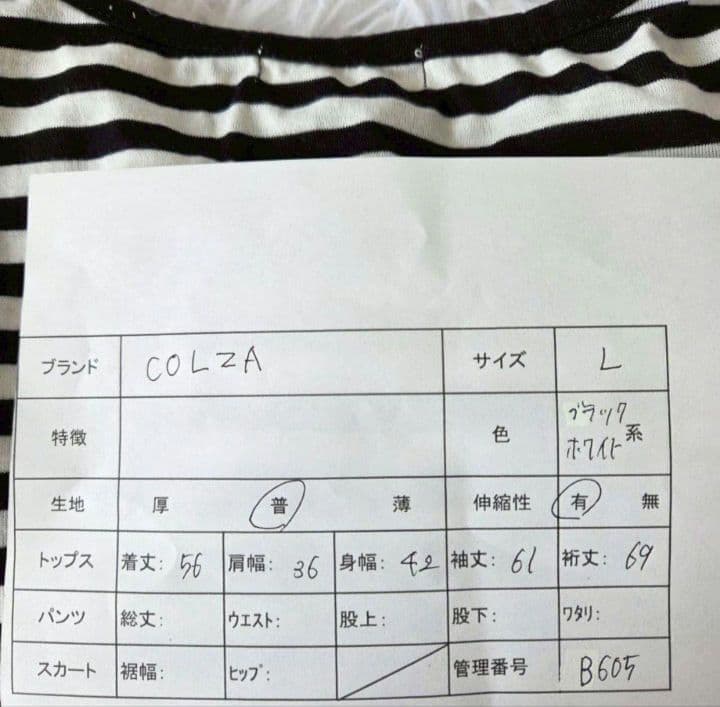 ブランド COLZA サイズ L
特徴 色 ブラック
ホワイト 系
生地 厚 普 薄 伸縮性 有 無
トップス 着丈: 56 肩幅: 36 身幅: 42 袖丈: 61 裄丈: 69
パンツ 総丈: ウエスト: 股上: 股下: ワタリ:
スカート 裾幅: ヒップ: 管理番号 B605